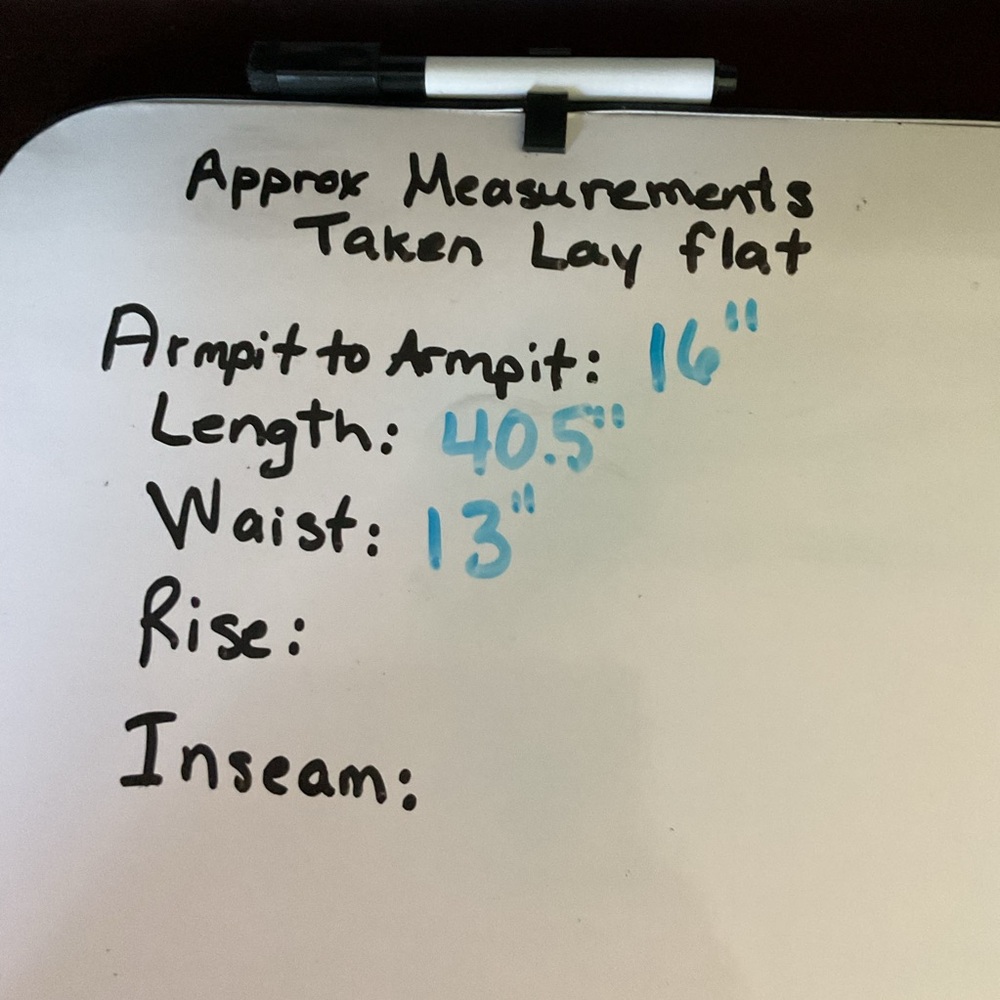 Approx Measurements
Taken Lay flat
Armpit to Armpit: 16"
Length: 40.5"
Waist: 13"
Rise:
Inseam: